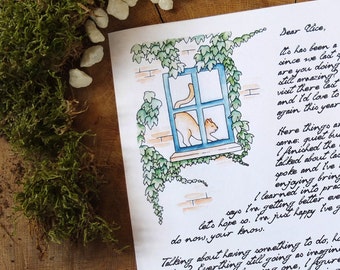 Dear Alice,
It's has been a
since we last
are you doing
still amazing!
visit there last
and I'd love to
again this year
Here things a
same: quiet bu
I finished the
talked about las
spoke and I've
enjoying bring
I learned into prac
says I'm getting better eve
let's hope so. I'm just happy I've g
do now, your know.
Talking about having something to do, ho
Everything still going as imagin
I figure